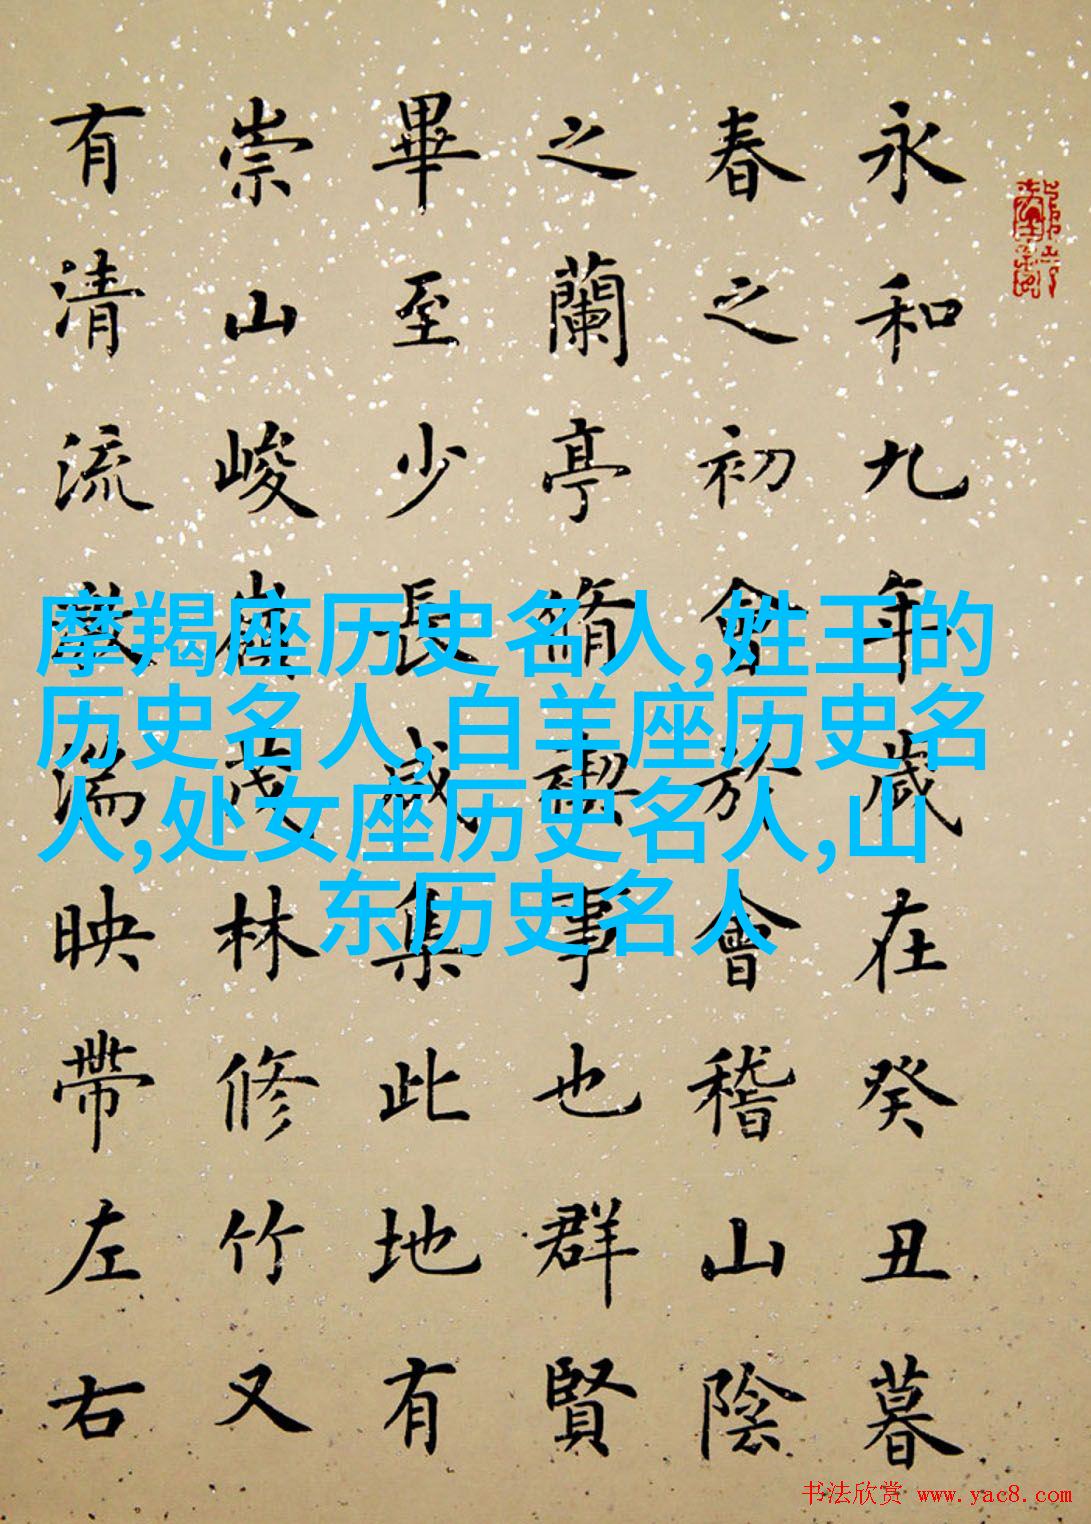 永和九年歲在癸丑暮
春之初會於會稽山陰
之蘭亭脩禊事也群賢
畢至少長咸集此地有
崇山峻嶺茂林修竹又
有清流激湍映帶左右
摩羯座历史名人,姓王的
历史名人,白羊座历史名
人,处女座历史名人,山
东历史名人
书法欣赏 www.yac8.com